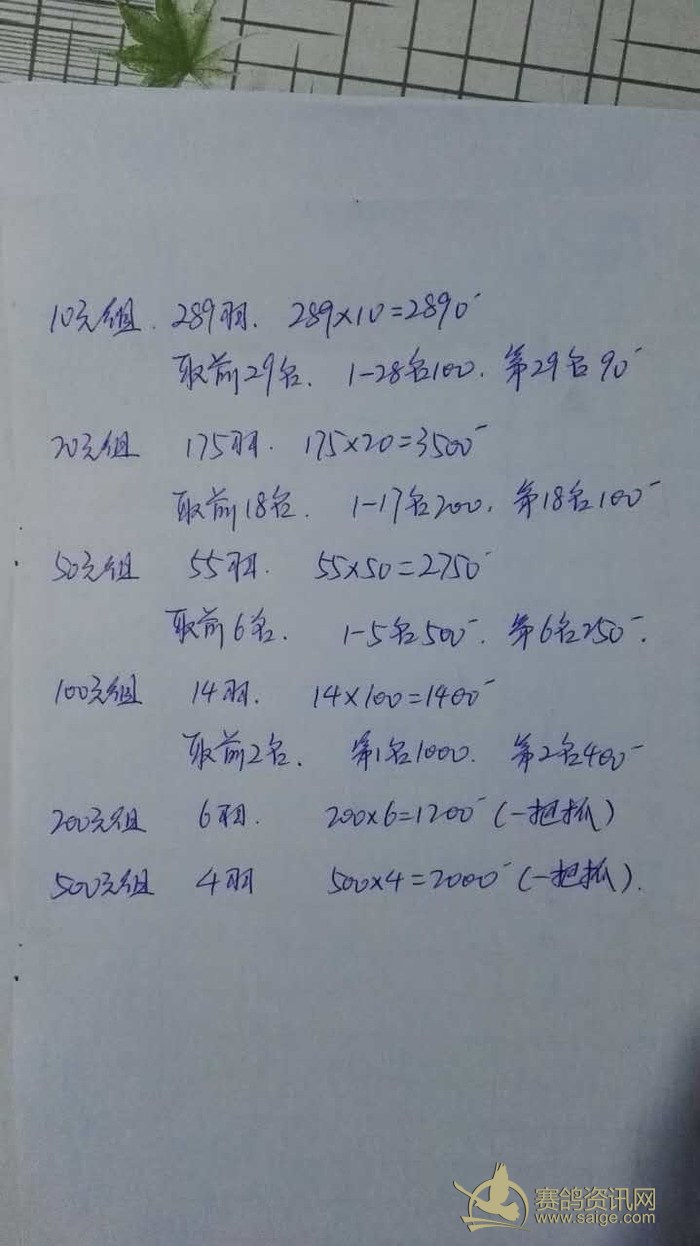 10元组. 289羽. 289×10=2890-
取前29名. 1-28名100. 第29名90-
20元组 175羽. 175×20=3500-
取前18名. 1-17名200. 第18名100-
50元组 55羽. 55×50=2750-
取前6名. 1-5名500-. 第6名250-.
100元组 14羽. 14×100=1400-
取前2名. 第1名1000. 第2名400-
200元组 6羽. 200×6=1200-(一把抓)
500元组 4羽 500×4=2000-(一把抓).
赛鸽资讯网
www.saige.com